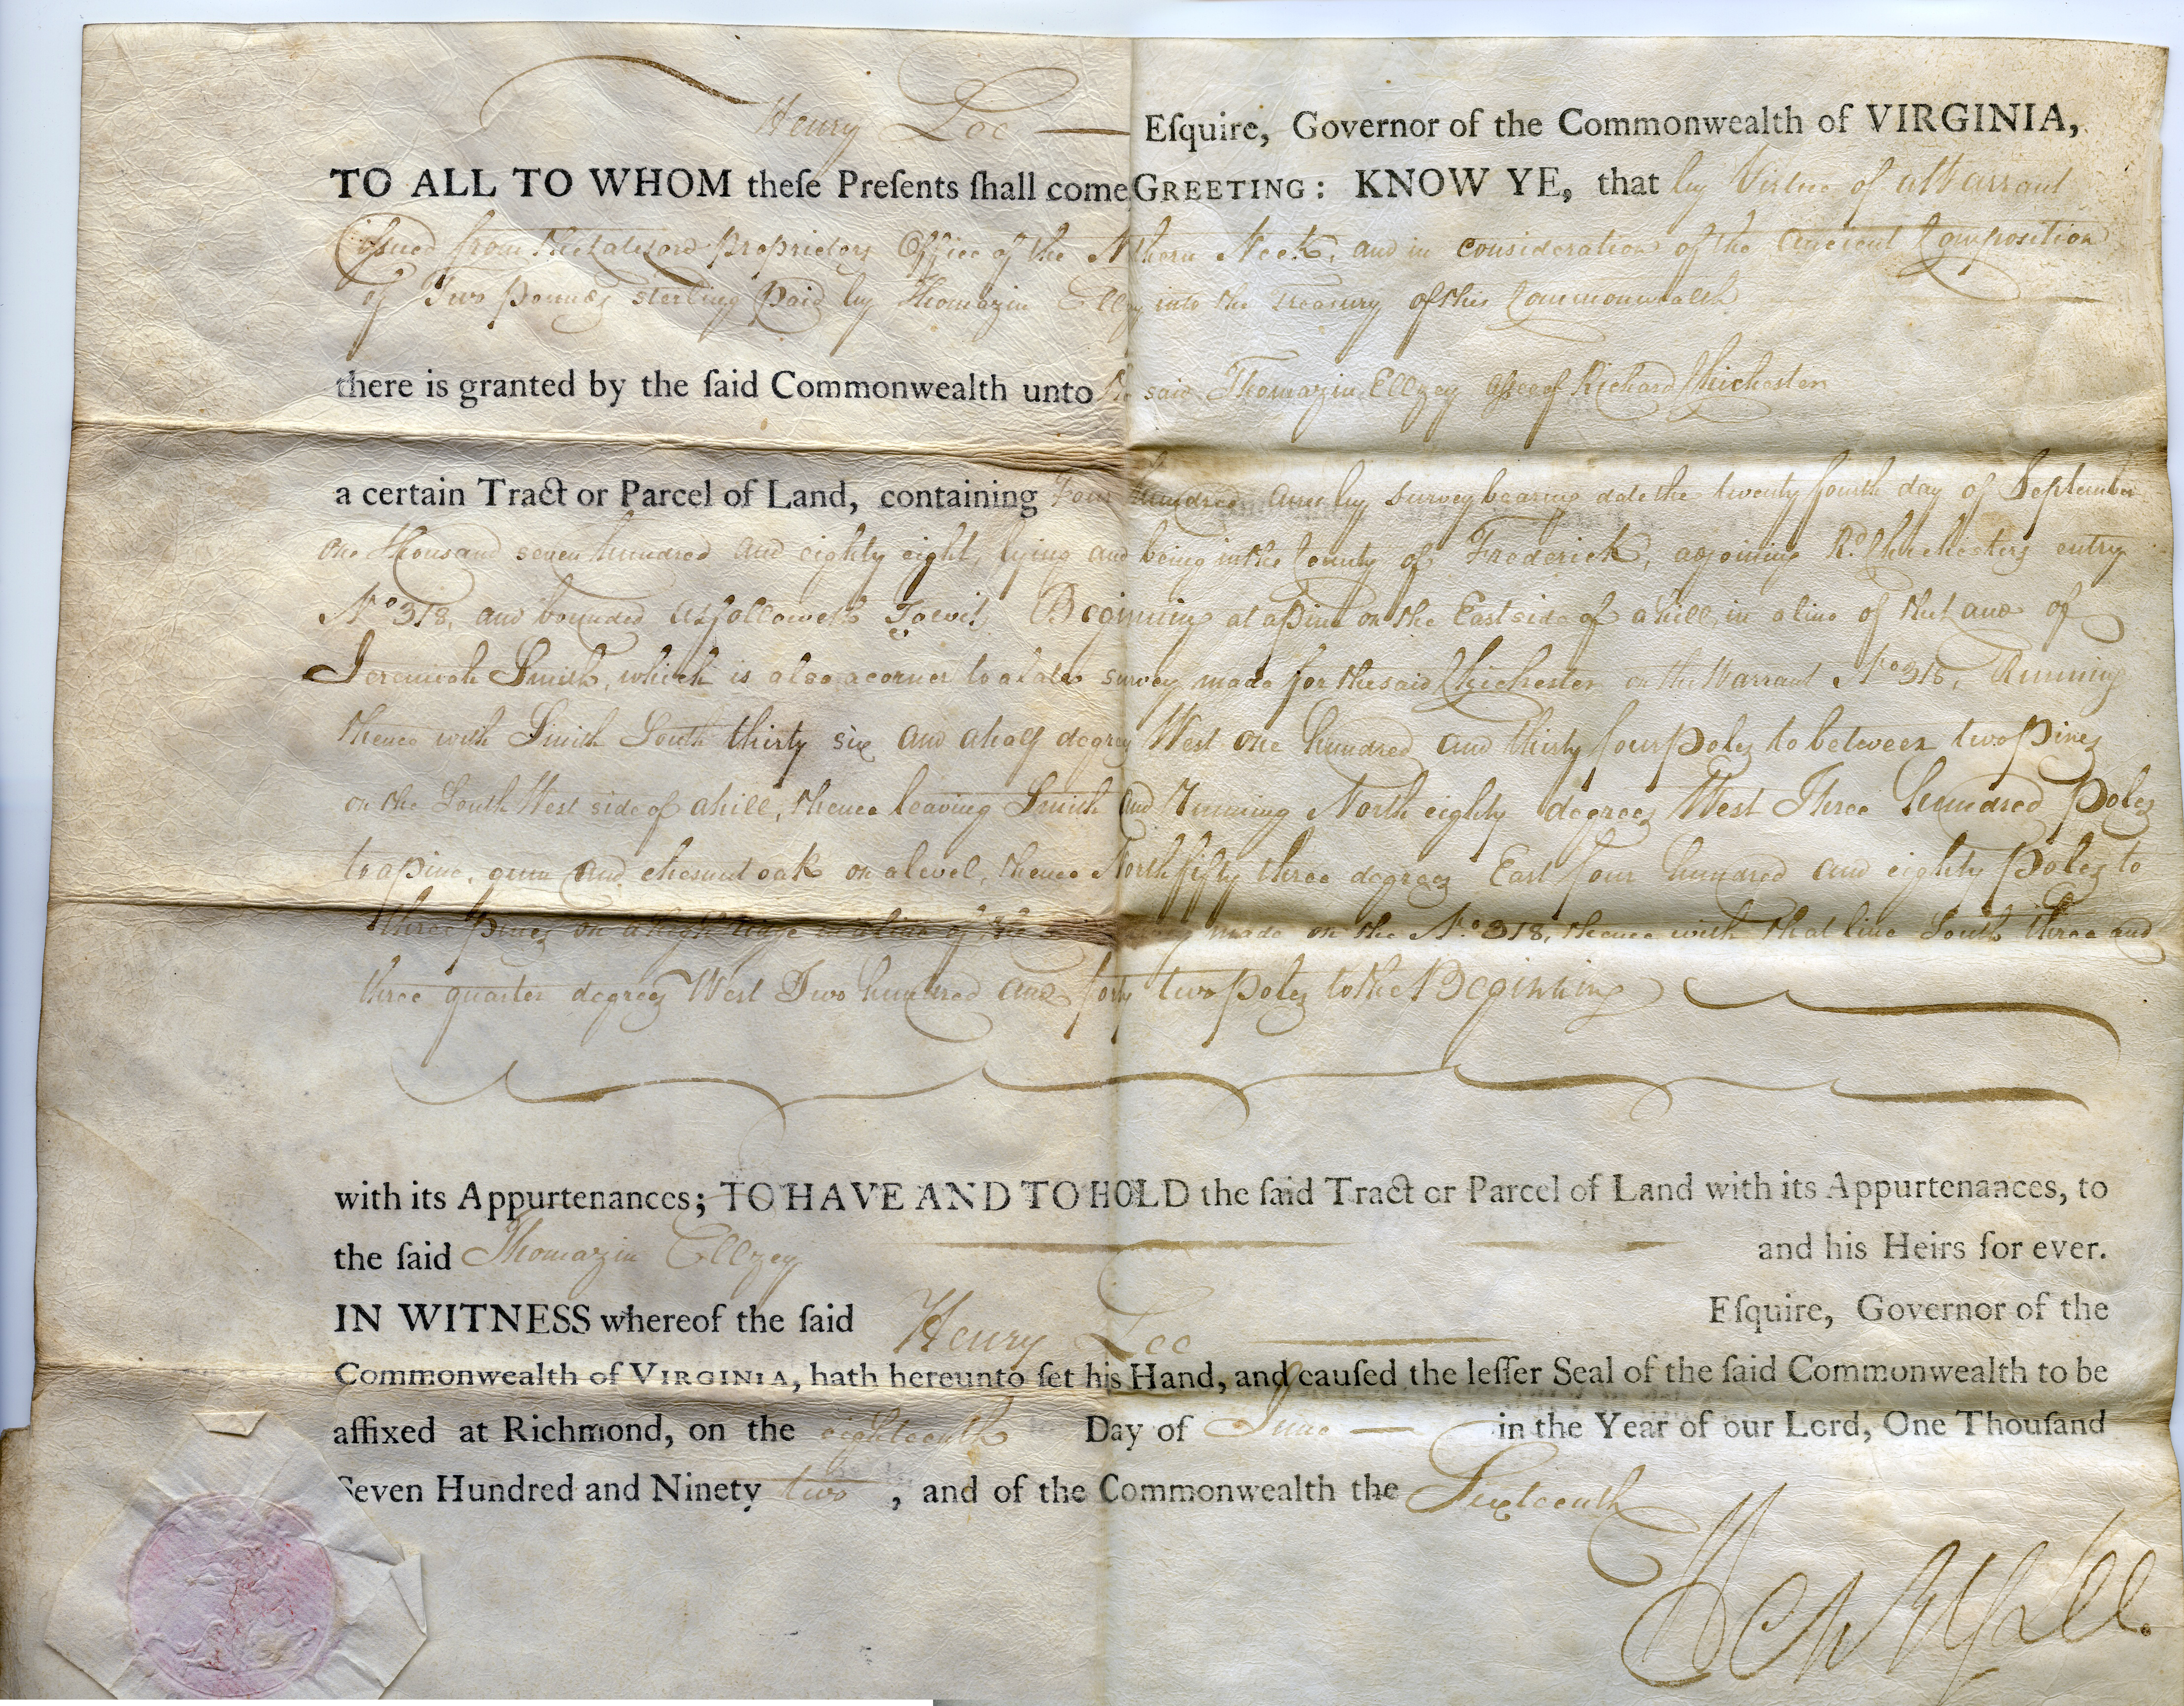 Henry Lee Eſquire, Governor of the Commonwealth of VIRGINIA,
TO ALL TO WHOM theſe Preſents ſhall come GREETING: KNOW YE, that by Virtue of a Warrant
iſsued from the late Lord proprietors Office of the N thern Neck, and in consideration of the ancient Composition
of Two pounds sterling paid by Thomazin Ellzey into the treasury of this Commonwealth
there is granted by the ſaid Commonwealth unto the said Thomazin Ellzey aſsee of Richard Chichester
a certain Tract or Parcel of Land, containing Four hundred acres by survey bearing date the twenty fourth day of September
one thousand seven hundred and eighty eight, lying and being in the County of Frederick, adjoining Rd. Chichesters entry
No 318, and bounded as followeth Towit, Beginning at a pine on the East side of a hill, in a line of the Land of
Jeremiah Smith, which is also a corner to a late survey made for the said Chichester on the Warrant No 318, Running
thence with Smith South thirty six and a half degrees West one hundred and thirty four poles to between two pines
on the South West side of a hill, thence leaving Smith and Running North eighty degrees West Three hundred poles
to a pine, gum and chesnut oak on a level, thence North fifty three degrees East four hundred and eighty poles to
three pines on a high ridge in a line of the made on the No 318, thence with that line South three and
three quarter degrees West Two hundred and forty two poles to the Beginning
with its Appurtenances; TO HAVE AND TO HOLD the ſaid Tract or Parcel of Land with its Appurtenances, to
the ſaid Thomazin Ellzey and his Heirs for ever.
IN WITNESS whereof the ſaid Henry Lee Eſquire, Governor of the
Commonwealth of VIRGINIA, hath hereunto ſet his Hand, and cauſed the leſſer Seal of the ſaid Commonwealth to be
affixed at Richmond, on the eighteenth Day of June in the Year of our Lord, One Thouſand
Seven Hundred and Ninety two, and of the Commonwealth the Sixteenth
Henry Lee.